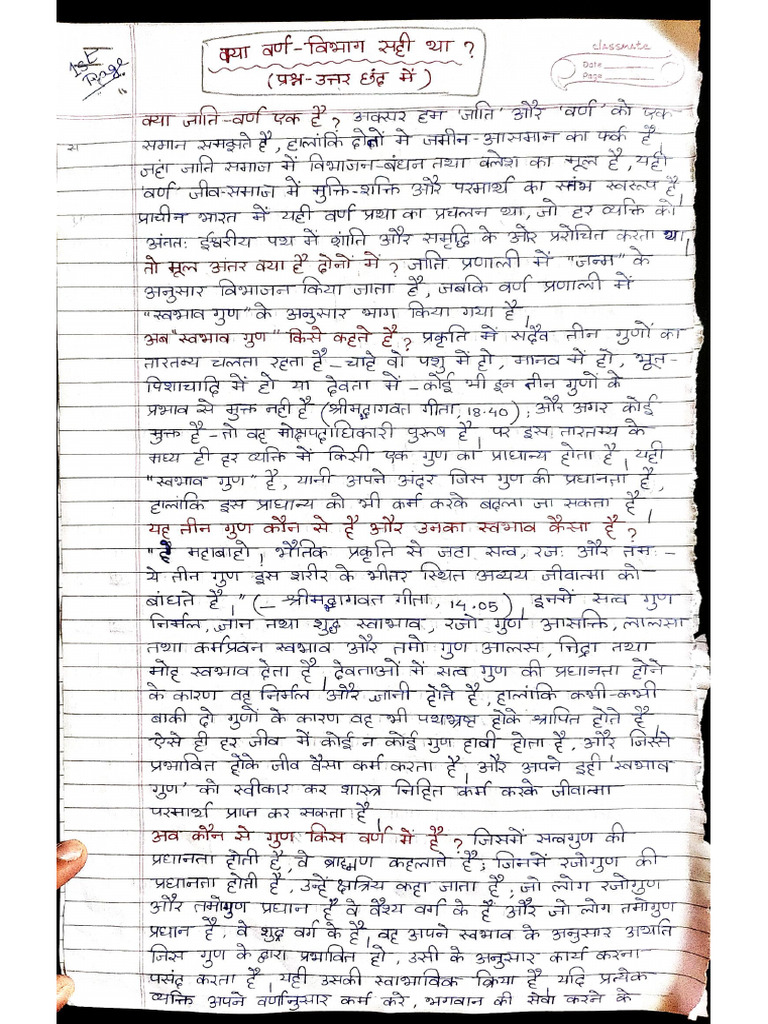 1st Page
क्या वर्ण-विभाग सही था ?
(प्रश्न-उत्तर छंद में)
classmate
Date
Page
क्या जाति-वर्ण एक है ? अक्सर हम 'जाति' और 'वर्ण' को एक
समान समझते है, हालांकि दोनों मे जमीन-आसमान का फर्क है,
जहां जाति समाज में विभाजन-बंधन तथा क्लेश का मूल है, यही
'वर्ण' जीव-समाज में मुक्ति-शक्ति और परमार्थ का स्तंभ स्वरूप है,
प्राचीन भारत में यही वर्ण प्रथा का प्रचलन था, जो हर व्यक्ति को
अंततः ईश्वरीय पथ में शांति और समृद्धि के ओर प्ररोचित करता था,
तो मूल अंतर क्या है दोनों में ? जाति प्रणाली में "जन्म" के
अनुसार विभाजन किया जाता है, जबकि वर्ण प्रणाली में
"स्वभाव गुण" के अनुसार भाग किया गया है,
अब "स्वभाव गुण" किसे कहते है ? प्रकृति में सदैव तीन गुणों का
तारतम्य चलता रहता है – चाहे वो पशु में हो, मानव में हो, भूत-
पिशाचादि में हो या देवता में – कोई भी इन तीन गुणों के
प्रभाव से मुक्त नही है (श्रीमद्भागवत गीता, 18.40) ; और अगर कोई
मुक्त है – तो वह मोक्षपदाधिकारी पुरूष है, पर इस तारतम्य के
मध्य ही हर व्यक्ति में किसी एक गुण का प्राधान्य होता है, यही
"स्वभाव गुण" है, यानी अपने अंदर जिस गुण की प्रधानता है,
हालांकि इस प्राधान्य को भी कर्म करके बदला जा सकता है,
यह तीन गुण कौन से है और उनका स्वभाव कैसा है ?
"हे महाबाहो ! भौतिक प्रकृति से जटा सत्व, रजः और तमः –
ये तीन गुण इस शरीर के भीतर स्थित अव्यय जीवात्मा को
बांधते है," (– श्रीमद्भागवत गीता, 14.05), इनमें सत्व गुण
निर्मल, ज्ञान तथा शुद्ध स्वाभाव, रजो गुण आसक्ति, लालसा
तथा कर्मप्रवन स्वभाव और तमो गुण आलस, निद्रा तथा
मोह स्वभाव देता है, देवताओं में सत्व गुण की प्रधानता होने
के कारण वह निर्मल और ज्ञानी होते है, हालांकि कभी-कभी
बाकी दो गुणों के कारण वह भी पथभ्रष्ट होके श्रापित होते है,
ऐसे ही हर जीव में कोई न कोई गुण हावी होता है, और जिससे
प्रभावित होके जीव वैसा कर्म करता है, और अपने इही 'स्वभाव
गुण' को स्वीकार कर शास्त्र निहित कर्म करके जीवात्मा
परमार्थ प्राप्त कर सकता है,
अब कौन से गुण किस वर्ण में है ? जिसमें सत्वगुण की
प्रधानता होती है, वे ब्राह्मण कहलाते है; जिनमें रजोगुण की
प्रधानता होती है, उन्हें क्षत्रिय कहा जाता है ; जो लोग रजोगुण
और तमोगुण प्रधान है वे वैश्य वर्ग के है और जो लोग तमोगुण
प्रधान है, वे शुद्र वर्ग के है, वह अपने स्वभाव के अनुसार अर्थात
जिस गुण के द्वारा प्रभावित हो, उसी के अनुसार कार्य करना
पसंद करता है, यही उसकी स्वाभाविक क्रिया है, यदि प्रत्येक
व्यक्ति अपने वर्णानुसार कर्म करे, भगवान की सेवा करने के